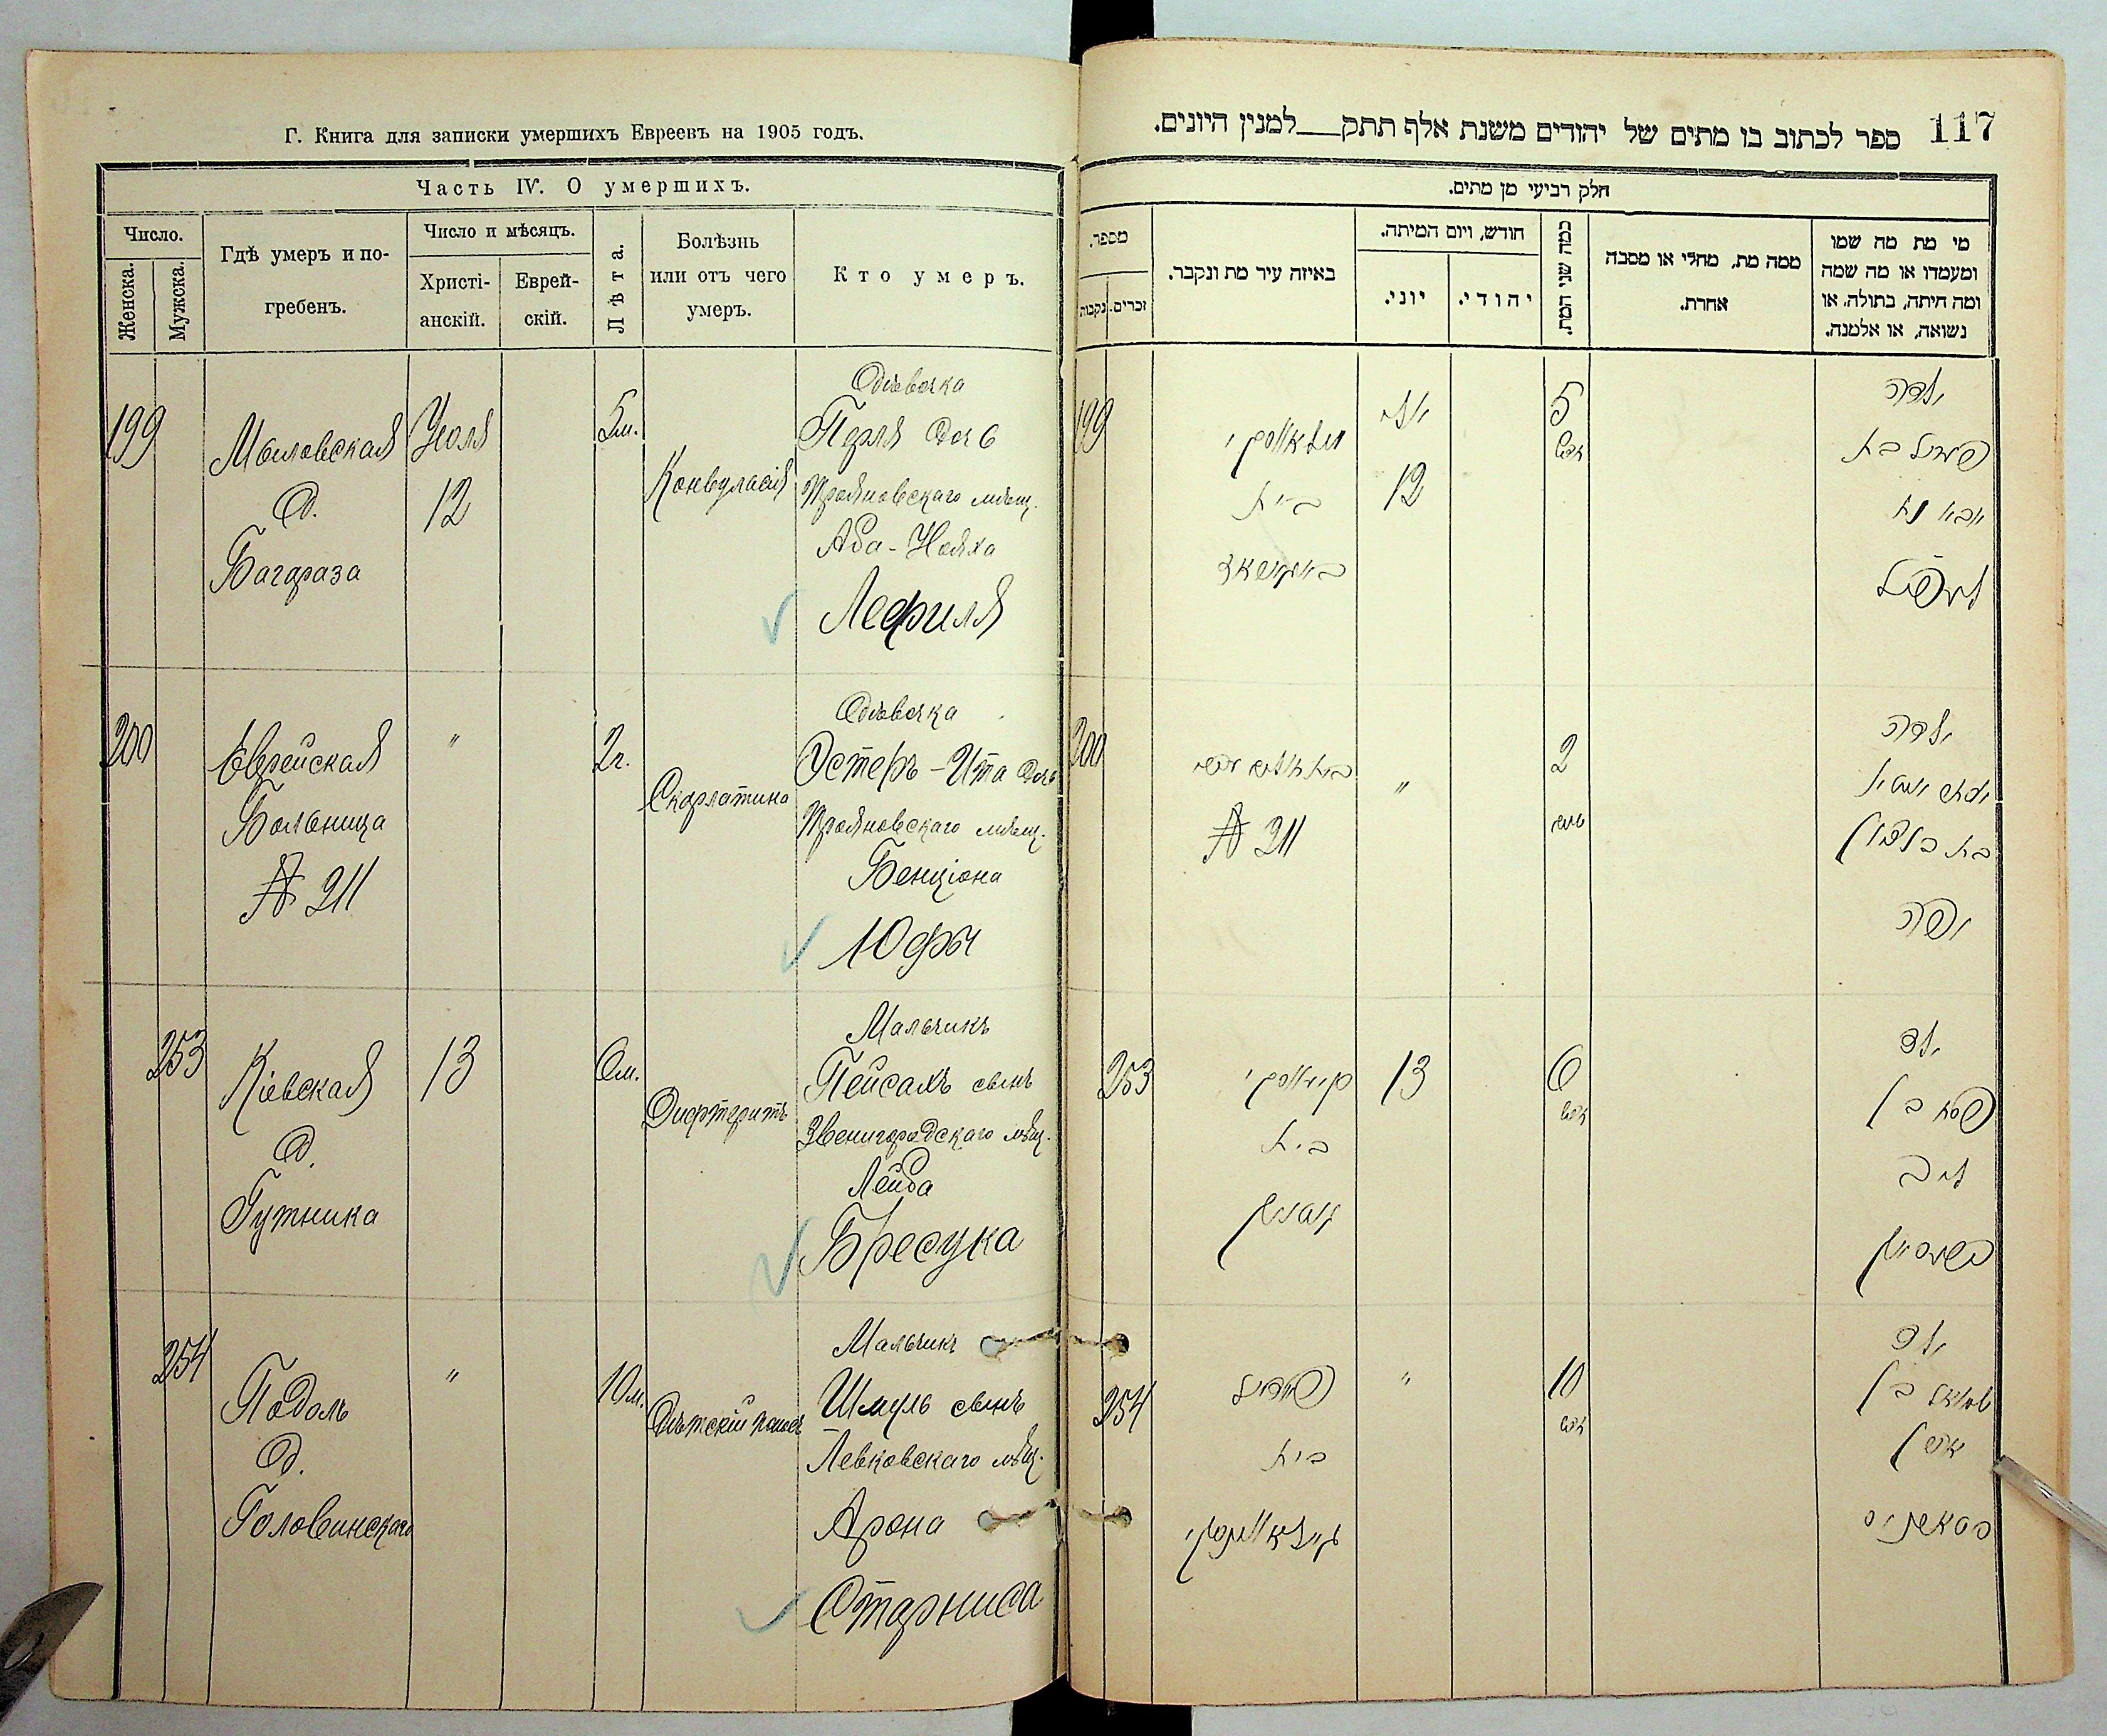 Г. Книга для записки умершихъ Евреевъ на 1905 годъ.
Часть IV. О умершихъ.
Число.
Женска.
Мужска.
Гдѣ умеръ и по-
гребенъ.
Число и мѣсяцъ.
Христі-
анскій.
Еврей-
скій.
Лѣта.
Болѣзнь
или отъ чего
умеръ.
Кто умеръ.
199
Мыловская
д.
Баграза
Июля
12
5м.
Конвульсія
Дѣвочка
Перля дочь
Трояновскаго мѣщ.
Аба-Нойха
Лефиля
200
Еврейская
Больница
№ 211
"
2г.
Скарлатина
Дѣвочка
Эстеръ-Ита дочь
Трояновскаго мѣщ.
Бенціона
Юфы
253
Кіевская
д.
Гутника
13
6м.
Дифтеритъ
Мальчикъ
Пейсахъ сынъ
Звенигородскаго мѣщ.
Лейба
254
Подоль
д.
Головинскаго
"
10м.
Дѣтскій поносъ
Мальчикъ
Шмуль сынъ
Левковскаго мѣщ.
Арона
117
ספר לכתוב בו מתים של יהודים משנת אלף תתק למנין היונים.
חלק רביעי מן מתים.
מספר.
נקבות
זכרים.
באיזה עיר מת ונקבר.
חודש, ויום המיתה.
יוני.
יהודי.
כמה שני המת.
ממה מת, מחלי או מסבה
אחרת.
מי מת מה שמו
ומעמדו או מה שמה
ומה היתה, בתולה, או
נשואה, או אלמנה.
199
בית
יולי
12
5
חדש
ילדה
פערל בת
אבא נח
200
№ 211
"
2
שנים
ילדה
אסתר איטא
בת בנציון
יופה
253
קיעווסקי
בית
גוטניק
13
6
חדש
ילד
פסח בן
ליב
254
פאדאל
בית
"
10
חדש
ילד
שמואל בן
אהרן